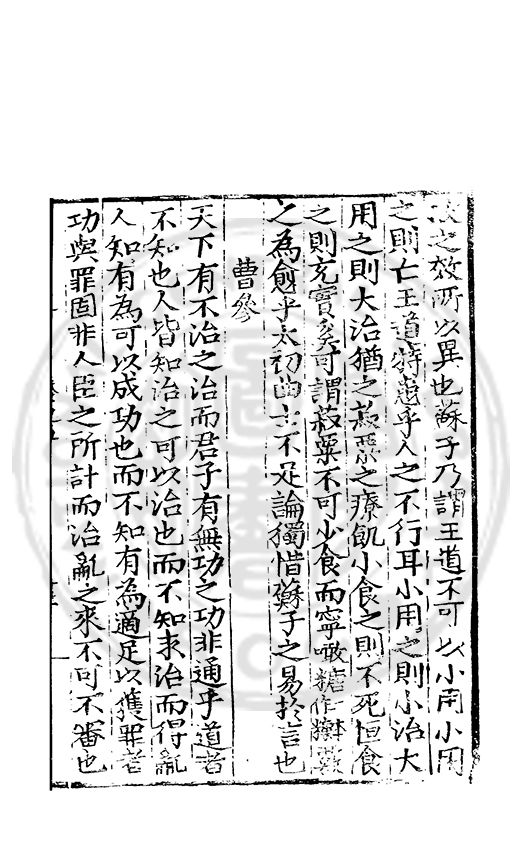 之效所以異也蘇子乃謂王道不可以小用小用
之則亡王道特患乎人之不行耳小用之則小治大
用之則大治猶之菽粟之療飢小食之則不死恒食
之則充實矣可謂菽粟不可少食而寧噉糖作
之為愈乎太初曲士不足論獨惜蘇子之易於言也
曹參
天下有不治之治而君子有無功之功非通乎道者
不知也人皆知治之可以治也而不知求治而得亂
人知有為可以成功也而不知有為適足以獲罪者
功與罪固非人臣之所計而治亂之來不可不審也